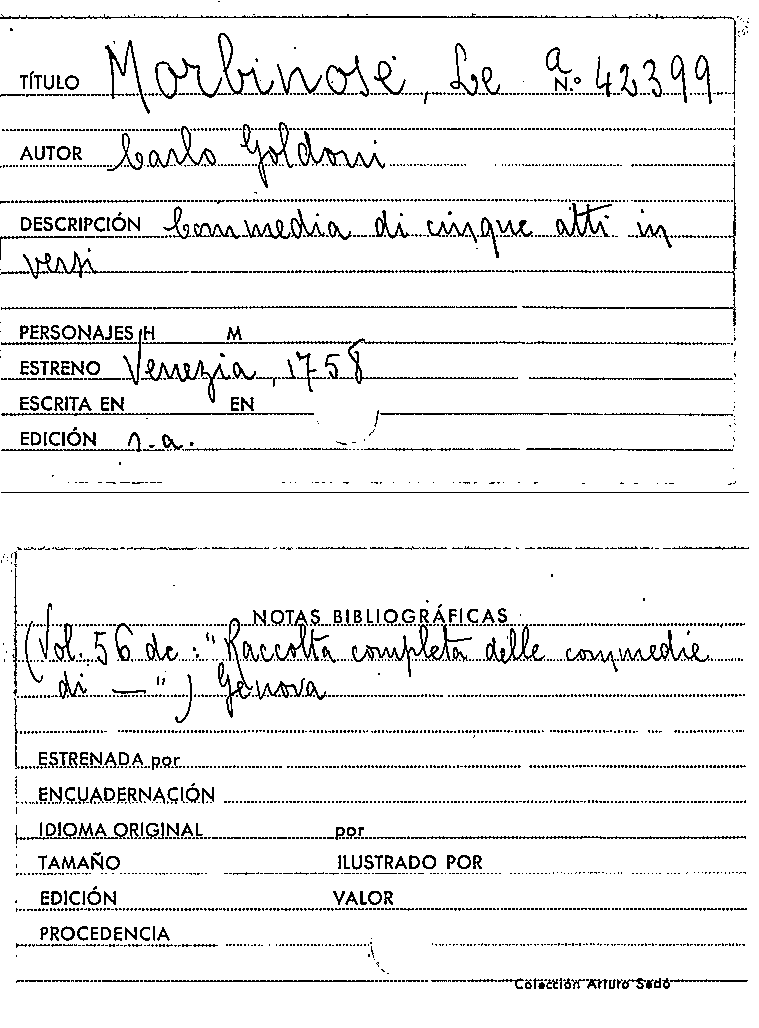 TÍTULO Morbinose, Le a N.º 42399
AUTOR Carlo Goldoni
DESCRIPCIÓN Commedia di cinque atti in
versi
PERSONAJES H M
ESTRENO Venezia, 1758
ESCRITA EN EN
EDICIÓN s.a.
NOTAS BIBLIOGRÁFICAS
(Vol. 56 de: "Raccolta completa delle commedie
di —") Genova
ESTRENADA por
ENCUADERNACIÓN
IDIOMA ORIGINAL por
TAMAÑO ILUSTRADO POR
EDICIÓN VALOR
PROCEDENCIA
Colección Arturo Sedó